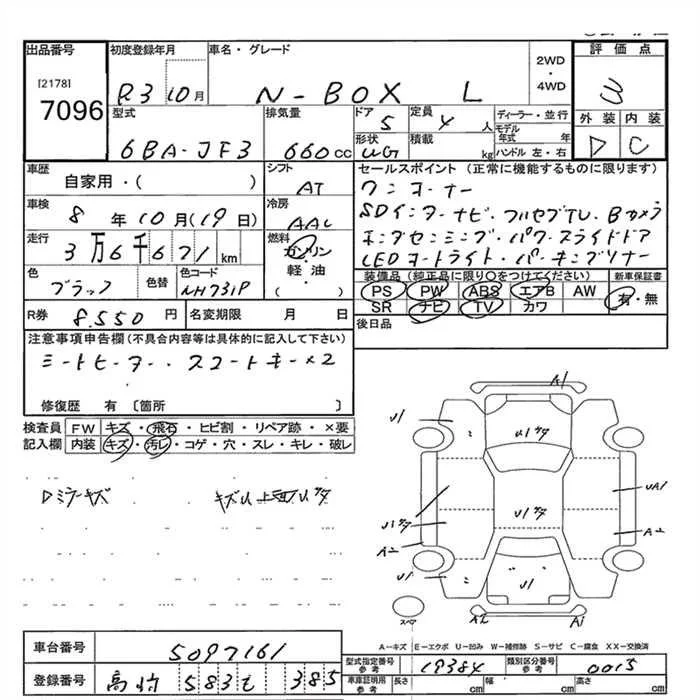 出品番号 初度登録年月 車名・グレード 2WD・4WD 評価点
[2178]
7096 R3 10月 N-BOX L 3
型式 排気量 ドア 5 定員 4人 ディーラー・並行 外装 内装
モデル年式 年
6BA-JF3 660cc 形状 WG 積載 kg ハンドル 左・右 D C
車歴 シフト セールスポイント (正常に機能するものに限ります)
自家用・( ) AT ワンオーナー
車検 冷房 SDインターナビ・フルセグTV・Bカメラ
8年10月(19日) AAC
走行 燃料 ホンダセンシング・パワースライドドア
3万6千671km ガソリン LEDヘッドライト・パーキングソナー
色 色替 色コード 軽・油 装備品 (純正品に限り○をつけてください) 新車保証書
ブラック NH731P ( ) PS PW ABS エアB AW 有・無
R券 8.550円 名変期限 月 日 SR ナビ TV カワ
後日品
注意事項申告欄(不具合内容等は具体的に記入して下さい)
シートヒーター・スマートキー×2
修復歴 有 〔箇所 〕
検査員 FW キズ・飛石・ヒビ割・リペア跡・×要
記入欄 内装 キズ・汚レ・コゲ・穴・スレ・キレ・破レ
Dミラーキズ
A1
U1
U1
UA1
A2
A2
U1
U1
A2
A1
スペア
A-キズ E-エクボ U-凹み W-補修跡 S-サビ C-腐食 XX-交換済
車台番号 5097161
型式指定番号 参考 19384 類別区分番号 参考 0015
登録番号 583 も 385
車庫証明用 参考 長さ cm 幅 cm 高さ cm